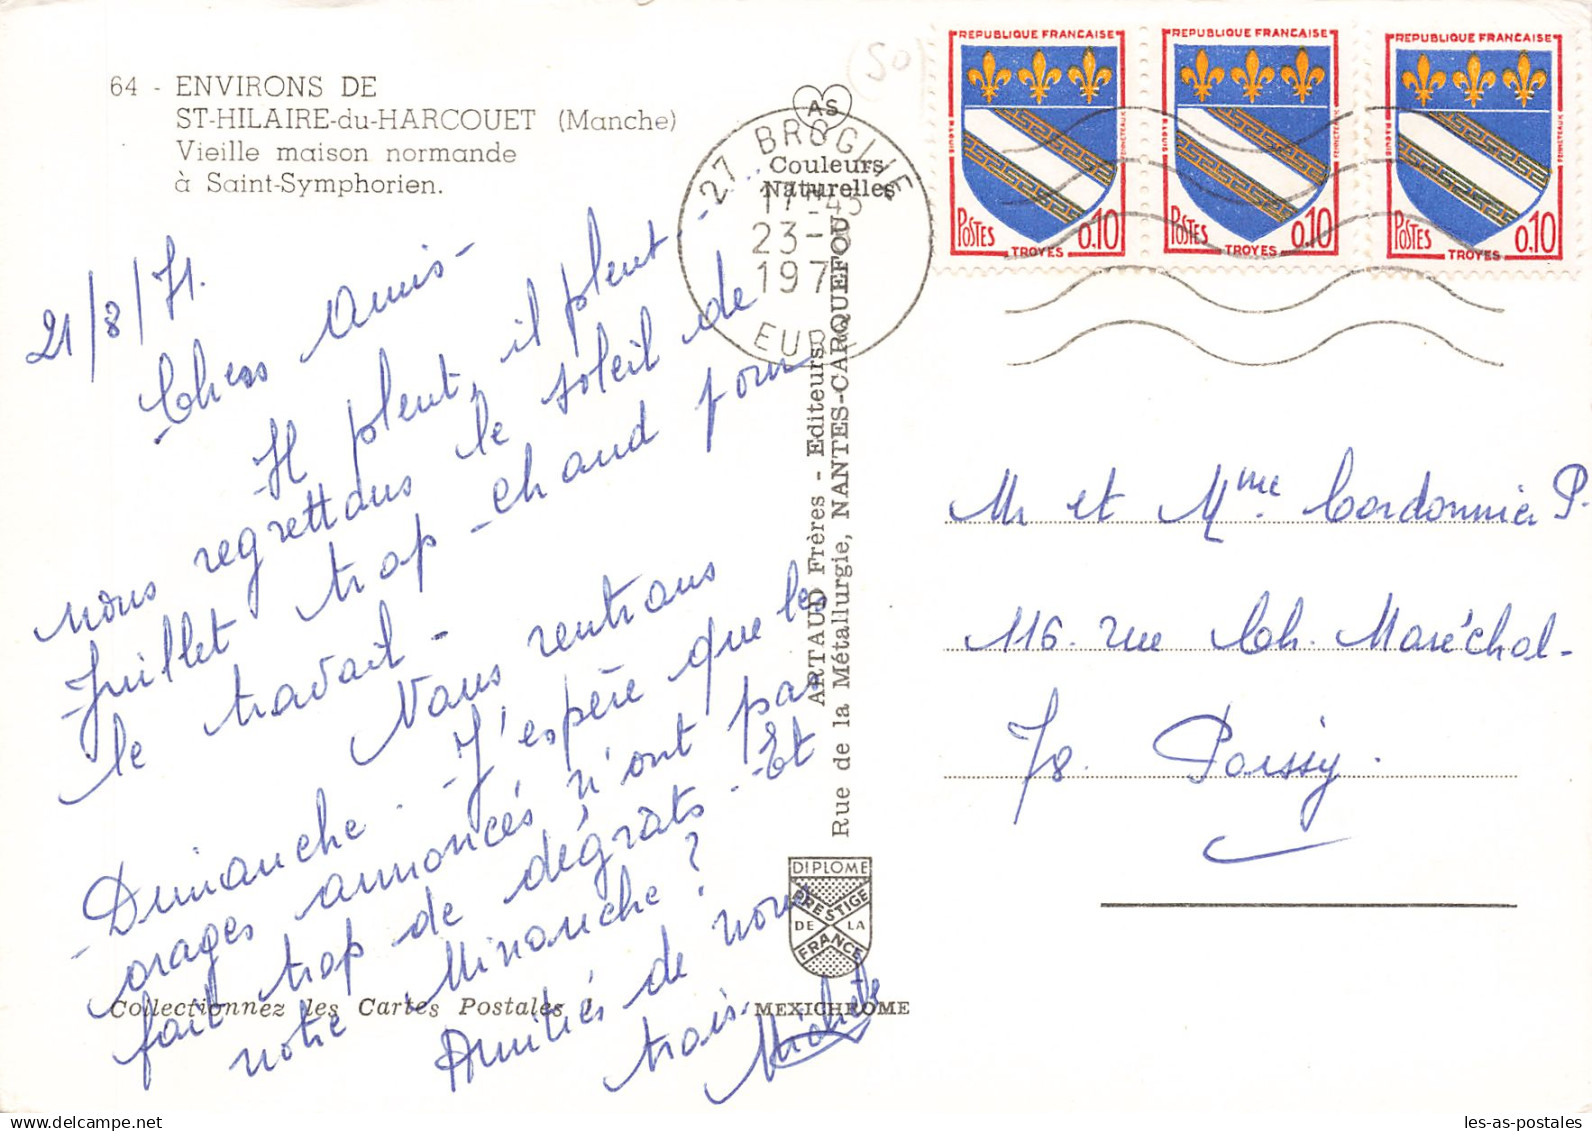 64 - ENVIRONS DE
ST-HILAIRE-du-HARCOUET (Manche)
Vieille maison normande
à Saint-Symphorien.
21/8/71.
Chers Amis -
Il pleut, il pleut -
nous regrettons le soleil de
Juillet trop chaud pour
le travail -
Nous rentrons
Dimanche. J'espère que les
orages annoncés n'ont pas
fait trop de dégrâts - Et
notre Minouche ?
Amitiés de nous
trois.
Michèle
Collectionnez les Cartes Postales !
MEXICHROME
AS
Couleurs
Naturelles
ARTAUD Frères - Editeurs
Rue de la Métallurgie, NANTES-CARQUEFOU
DIPLOME
PRESTIGE
DE LA
FRANCE
(50)
27 BROGLIE
17H45
23-8
197
EURE
REPUBLIQUE FRANCAISE
POSTES
0,10
TROYES
REPUBLIQUE FRANCAISE
POSTES
0,10
TROYES
REPUBLIQUE FRANCAISE
POSTES
0,10
TROYES
Mr et Mme Cordonnier P.
116. rue Ch. Maréchal -
78. Poissy.
les-as-postales.com